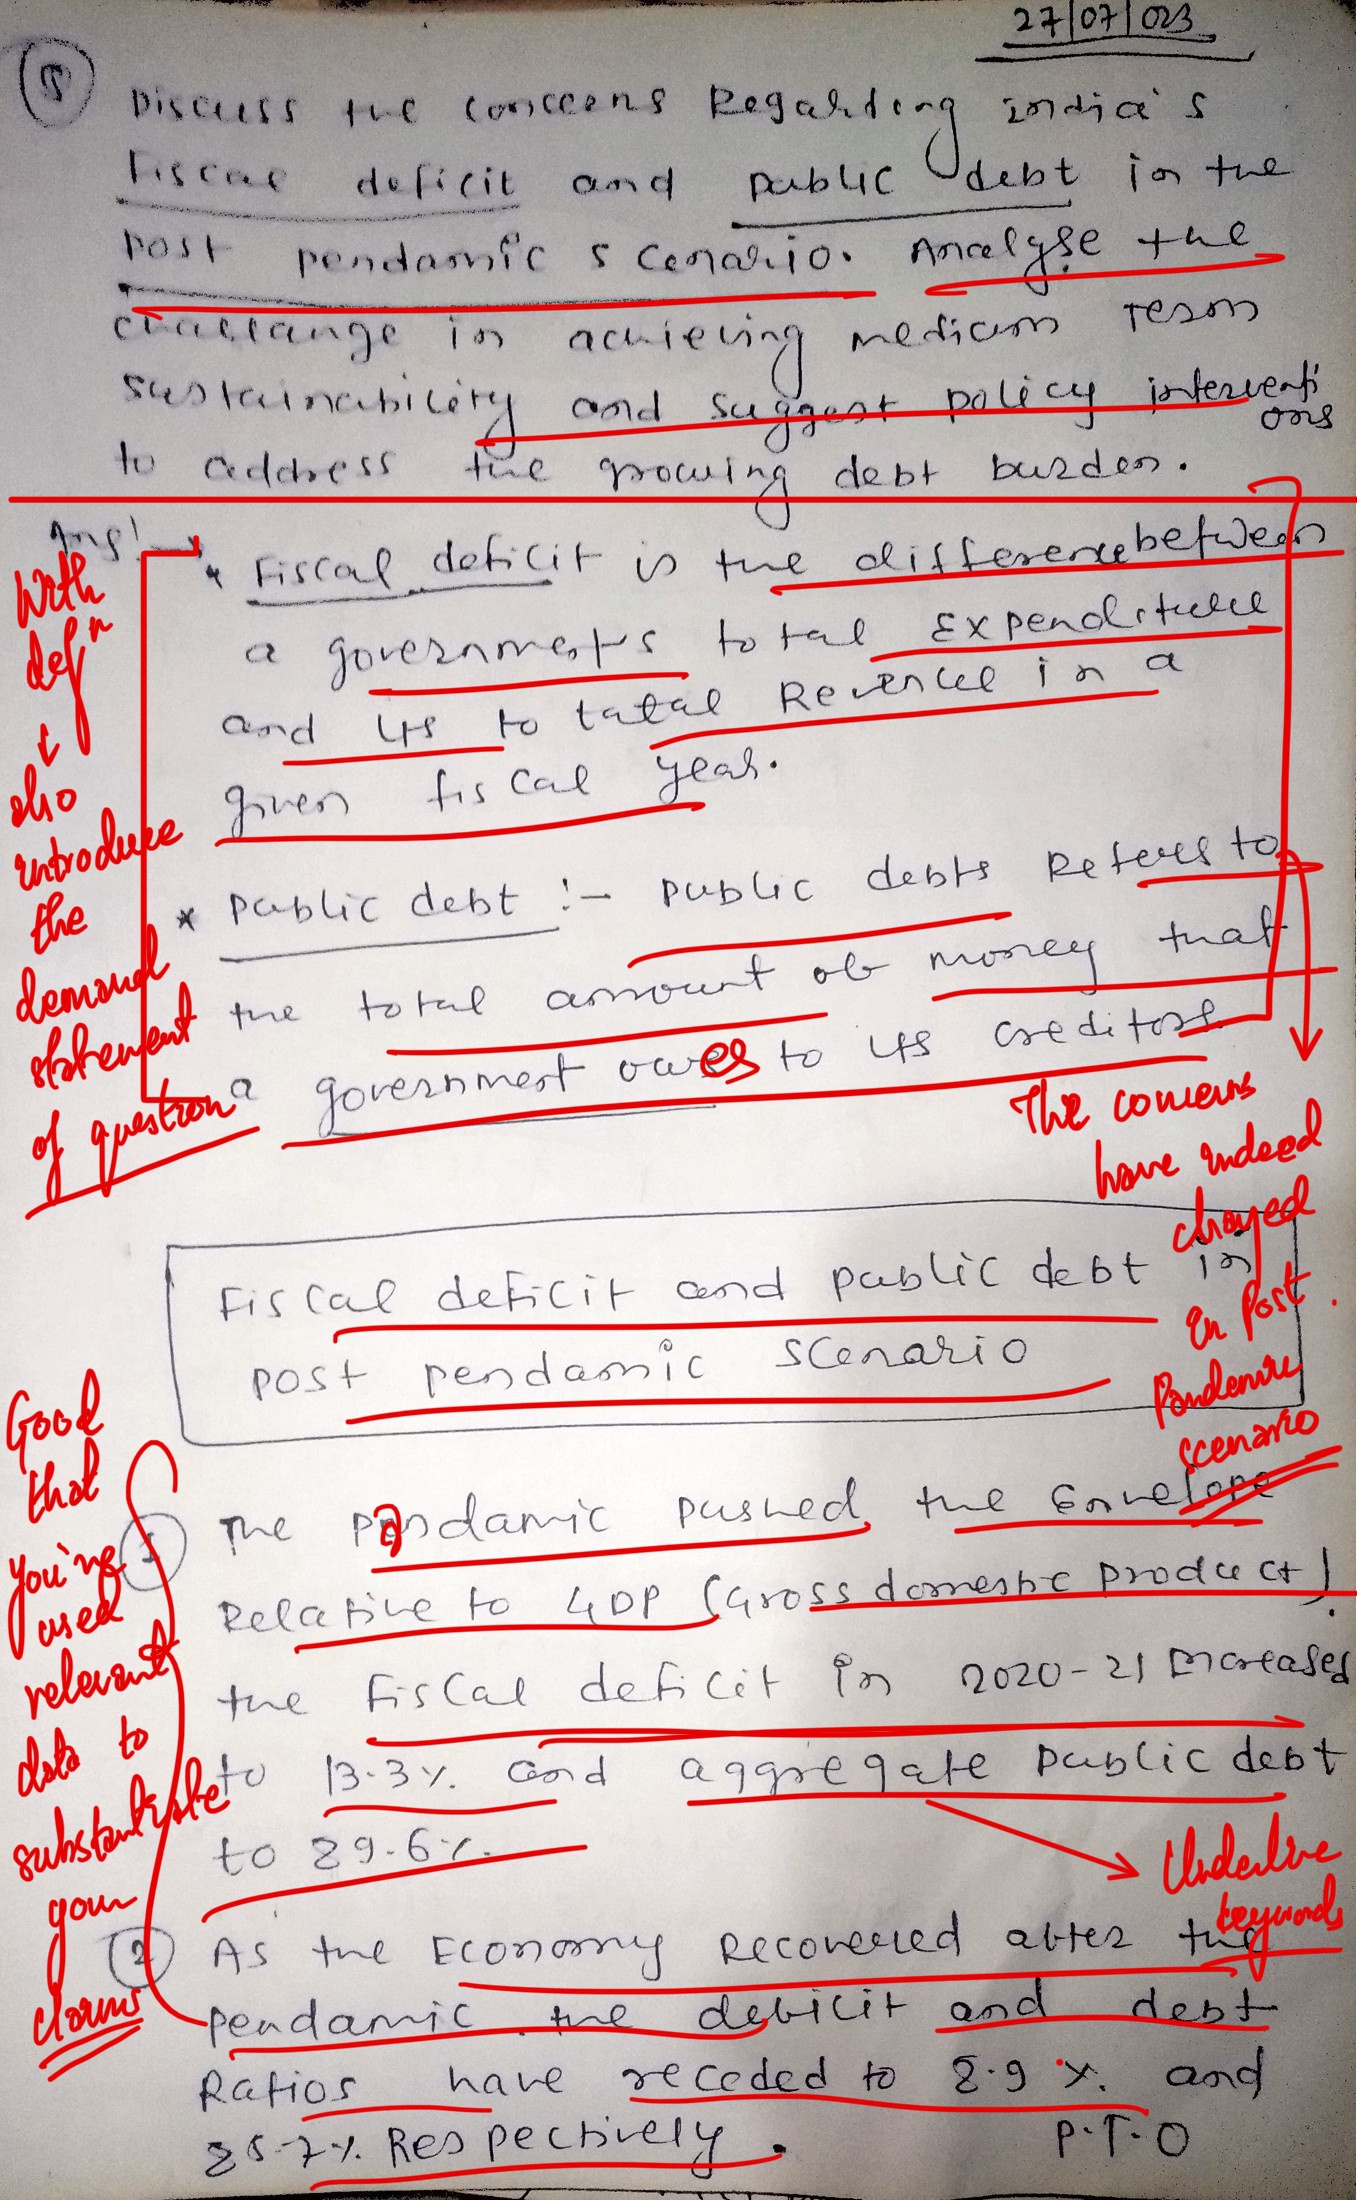 27/07/023
5
Discuss the concerns Regarding india's
fiscal deficit and public debt in the
post pendamic scenario. Analyse the
challange in achieving medium Term
sustainability and suggest policy interventi
ons
to address the growing debt burden.
Ans!→
* Fiscal deficit is the difference between
a government's total Expenditure
and its to tatal Revenue in a
given fiscal year.
* public debt :- public debts Refers to
the total amount ob money that
a government owes to its creditors
With
defn
&
also
introduce
the
demand
statement
of question
The concerns
have indeed
changed
in Post
Pandemic
scenario
Fiscal deficit and public debt in
post pendamic scenario
Good
that
you've
used
relevant
data to
substantiate
your
claims
1 The pandamic pushed the Envelope
Relative to GDP (Gross domestic product).
the fiscal deficit in 2020-21 Increased
to 13.3%. and aggregate public debt
to 89.6%.
Underline
keywords
2 As the Economy Recovered abter the
pendamic the debicit and debt
Ratios have receded to 8.9%. and
85.7%. Respectively.
P.T.O